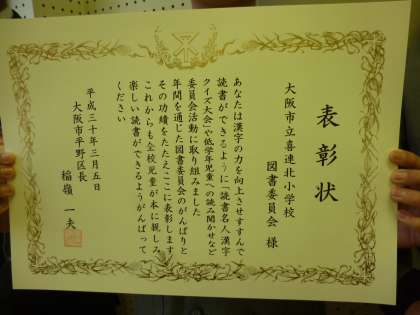 表彰状
大阪市立喜連北小学校
図書委員会 様
あなたは漢字の力を向上させすすんで
読書ができるように「読書名人漢字
クイズ大会」や低学年児童への読み聞かせなど
委員会活動に取り組みました
年間を通じた図書委員会のがんばりと
その功績をたたえここに表彰します
これからも全校児童が本に親しみ
楽しい読書ができるようがんばって
ください
平成三十年三月五日
大阪市平野区長
稲嶺 一夫